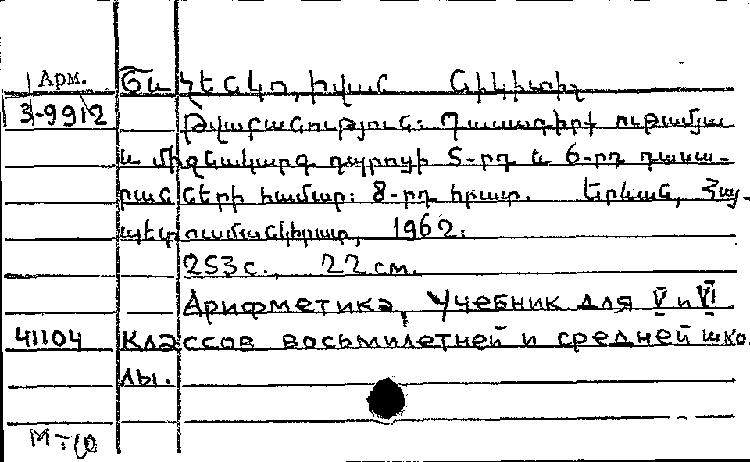 Арм. Շևչենկո, Իվան Նիկիտիչ
3-9912 Թվաբանություն: Դասագիրք ութամյա
և միջնակարգ դպրոցի 5-րդ և 6-րդ դասա-
րանների համար: 8-րդ հրատ. Երևան, Հայ-
պետուսմանկհրատ, 1962.
253 с., 22 см.
Арифметика, Учебник для V и VI
41104 классов восьмилетней и средней шко
лы.